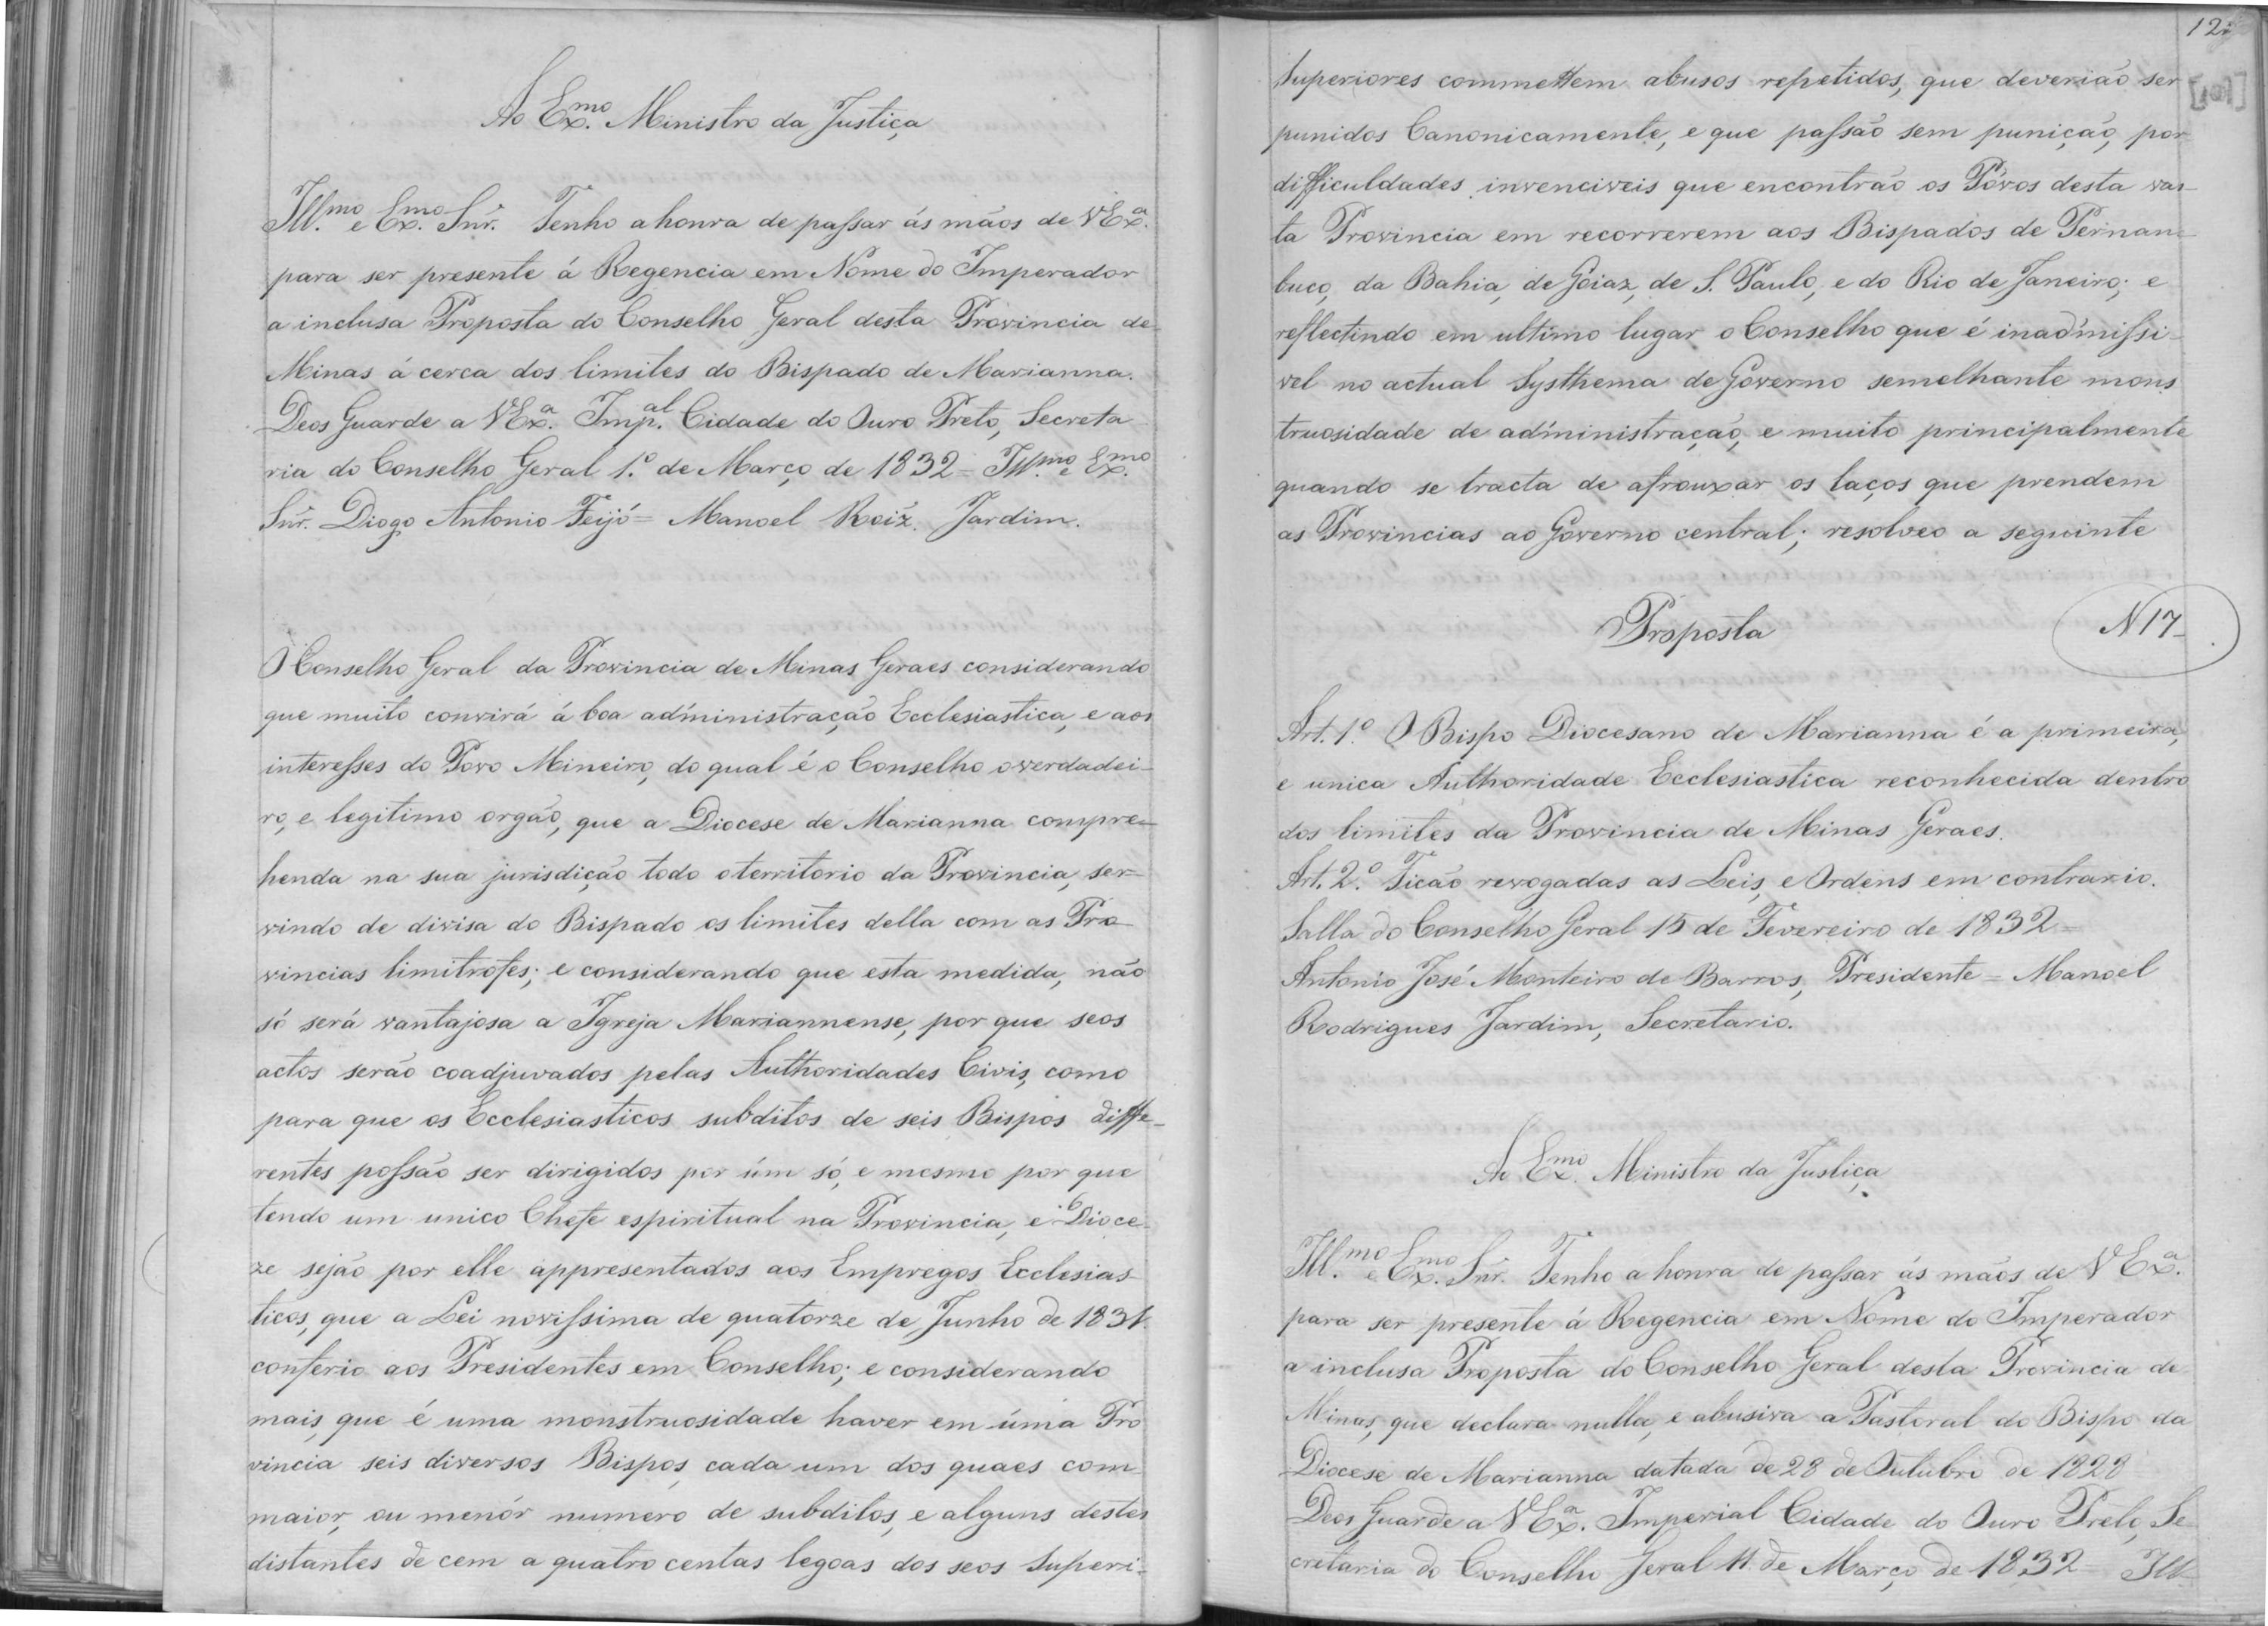 Ao Ex.mo Ministro da Justiça
Ill.mo e Ex.mo Snr. Tenho a honra de passar ás mãos de VEx.a
para ser presente á Regencia em Nome do Imperador
a inclusa Proposta do Conselho Geral desta Provincia de
Minas á cerca dos limites do Bispado de Marianna.
Deos Guarde a VEx.a Imp.al Cidade do Ouro Preto, Secreta
ria do Conselho Geral 1.º de Março de 1832 = Ill.mo e Ex.mo
Snr. Diogo Antonio Feijó = Manoel Roiz. Jardim.
O Conselho Geral da Provincia de Minas Geraes considerando
que muito convirá á boa administração Ecclesiastica, e aos
interesses do Povo Mineiro, do qual é o Conselho o verdadei-
ro, e legitimo orgão, que a Diocese de Marianna compre-
henda na sua jurisdição todo o territorio da Provincia, ser-
vindo de divisa do Bispado os limites della com as Pro
vincias limitrofes; e considerando que esta medida, não
só será vantajosa a Igreja Mariannense, por que seos
actos serão coadjuvados pelas Authoridades Civis, como
para que os Ecclesiasticos subditos de seis Bispos diffe-
rentes possão ser dirigidos por úm só, e mesmo por que
tendo um unico Chefe espiritual na Provincia, e Dioce-
ze sejão por elle appresentados aos Empregos Ecclesias-
ticos, que a Lei novissima de quatorze de Junho de 1831.
conferio aos Presidentes em Conselho; e considerando
mais, que é uma monstruosidade haver em úma Pro
vincia seis diversos Bispos, cada um dos quaes com
maior, ou menór numero de subditos, e alguns destes
distantes de cem a quatro centas legoas dos seos Superi-
12
[101]
Superiores commettem abusos repetidos, que deverião ser
punidos Canonicamente, e que passão sem punição, por
difficuldades invenciveis que encontrão os Póvos desta vas-
ta Provincia em recorrerem aos Bispados de Pernam-
buco, da Bahia, de Goiaz, de S. Paulo, e do Rio de Janeiro; e
reflectindo em ultimo lugar o Conselho que é inadmissi-
vel no actual Systhema de Governo semelhante mons
truosidade de administração, e muito principalmente
quando se tracta de afrouxar os laços que prendem
as Provincias ao Governo central; resolveo a seguinte
Proposta
N 17
Art. 1.º O Bispo Diocesano de Marianna é a primeira,
e unica Authoridade Ecclesiastica reconhecida dentro
dos limites da Provincia de Minas Geraes.
Art. 2.º Ficão revogadas as Leis, e Ordens em contrario.
Salla do Conselho Geral 15 de Fevereiro de 1832 =
Antonio José Monteiro de Barros, Presidente = Manoel
Rodrigues Jardim, Secretario.
Ao Ex.mo Ministro da Justiça
Ill.mo e Ex.mo Snr. Tenho a honra de passar ás mãos de VEx.a
para ser presente á Regencia em Nome do Imperador
a inclusa Proposta do Conselho Geral desta Provincia de
Minas, que declara nulla, e abusiva a Pastoral do Bispo da
Diocese de Marianna datada de 28 de Outubro de 1828
Deos Guarde a VEx.a Imperial Cidade do Ouro Preto, Se
cretaria do Conselho Geral 11 de Março de 1832 = Ill